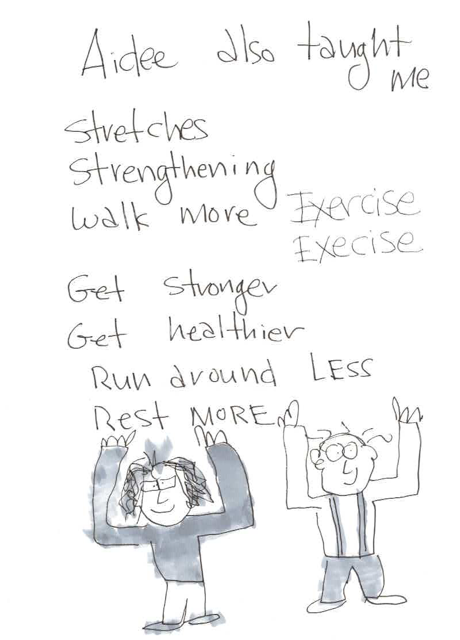 Aidee also taught
me
Stretches
Strengthening
Walk more Exercise
Execise
Get stronger
Get healthier
Run around LESS
Rest MORE